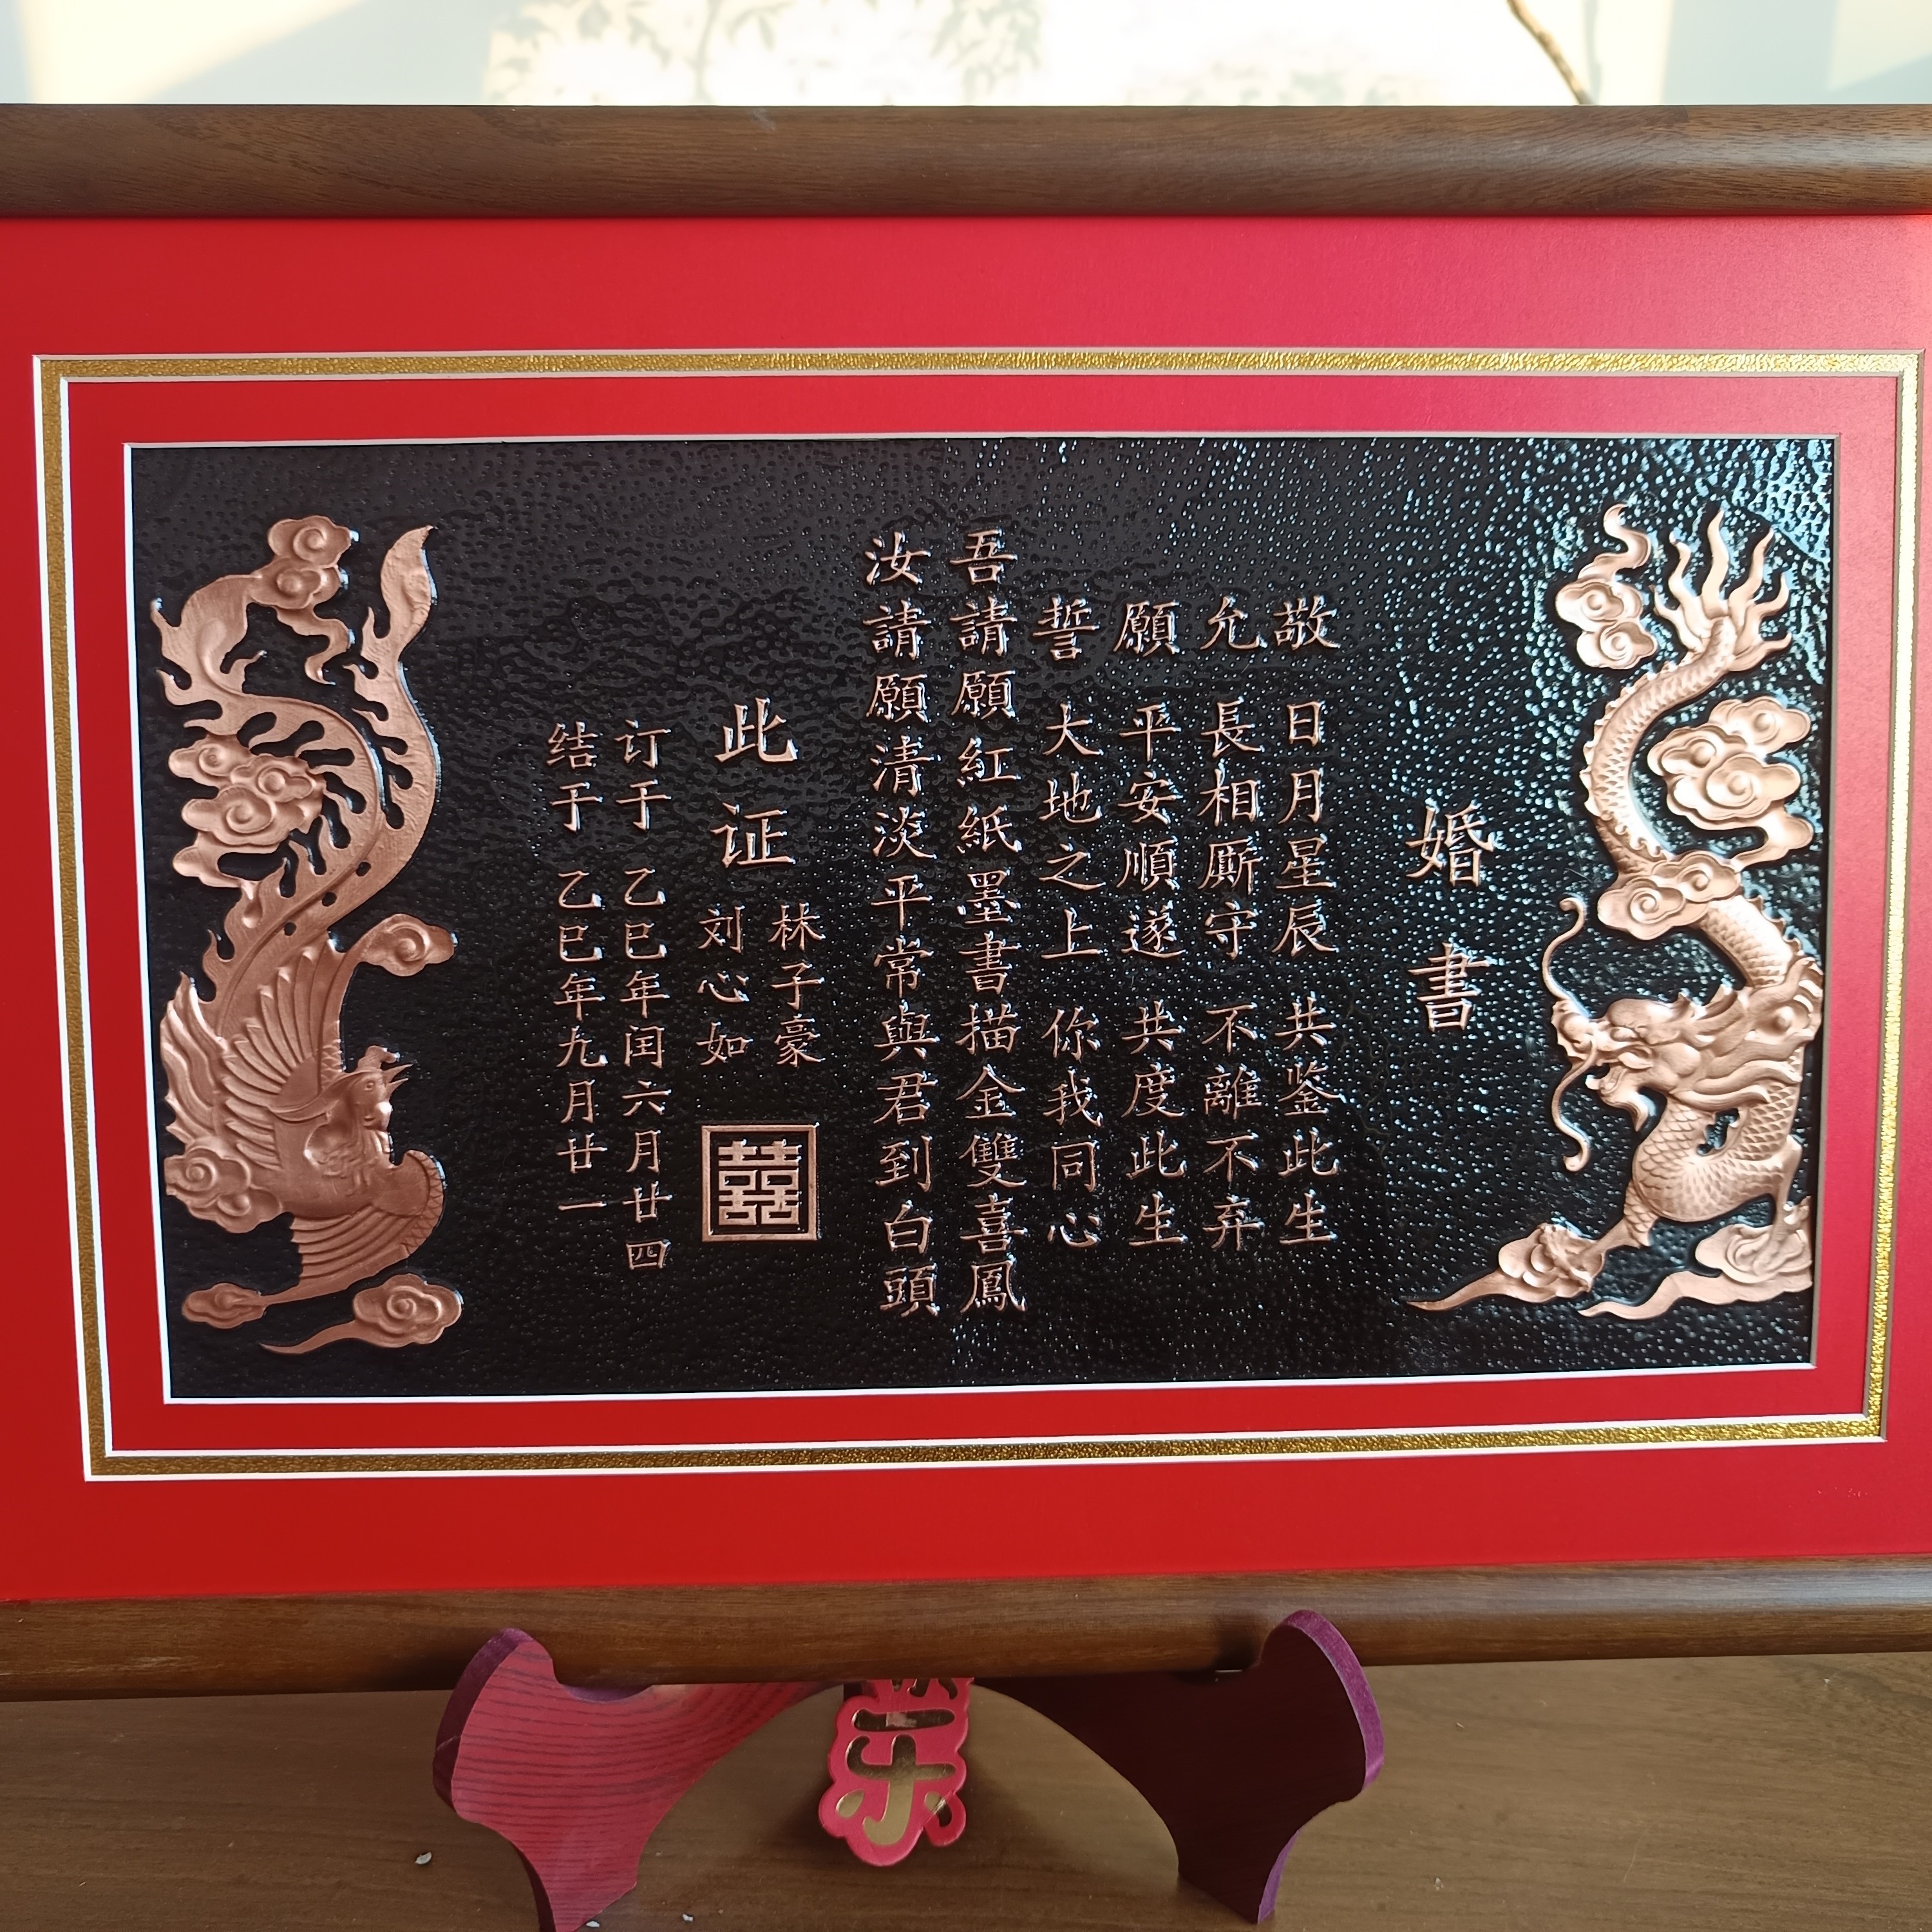 婚書
敬 日月星辰 共鉴此生
允 長相厮守 不離不弃
願 平安順遂 共度此生
誓 大地之上 你我同心
吾請願紅紙墨書描金雙喜鳳
汝請願清淡平常與君到白頭
此证
林子豪
刘心如
囍
订于 乙巳年闰六月廿四
结于 乙巳年九月廿一
乐